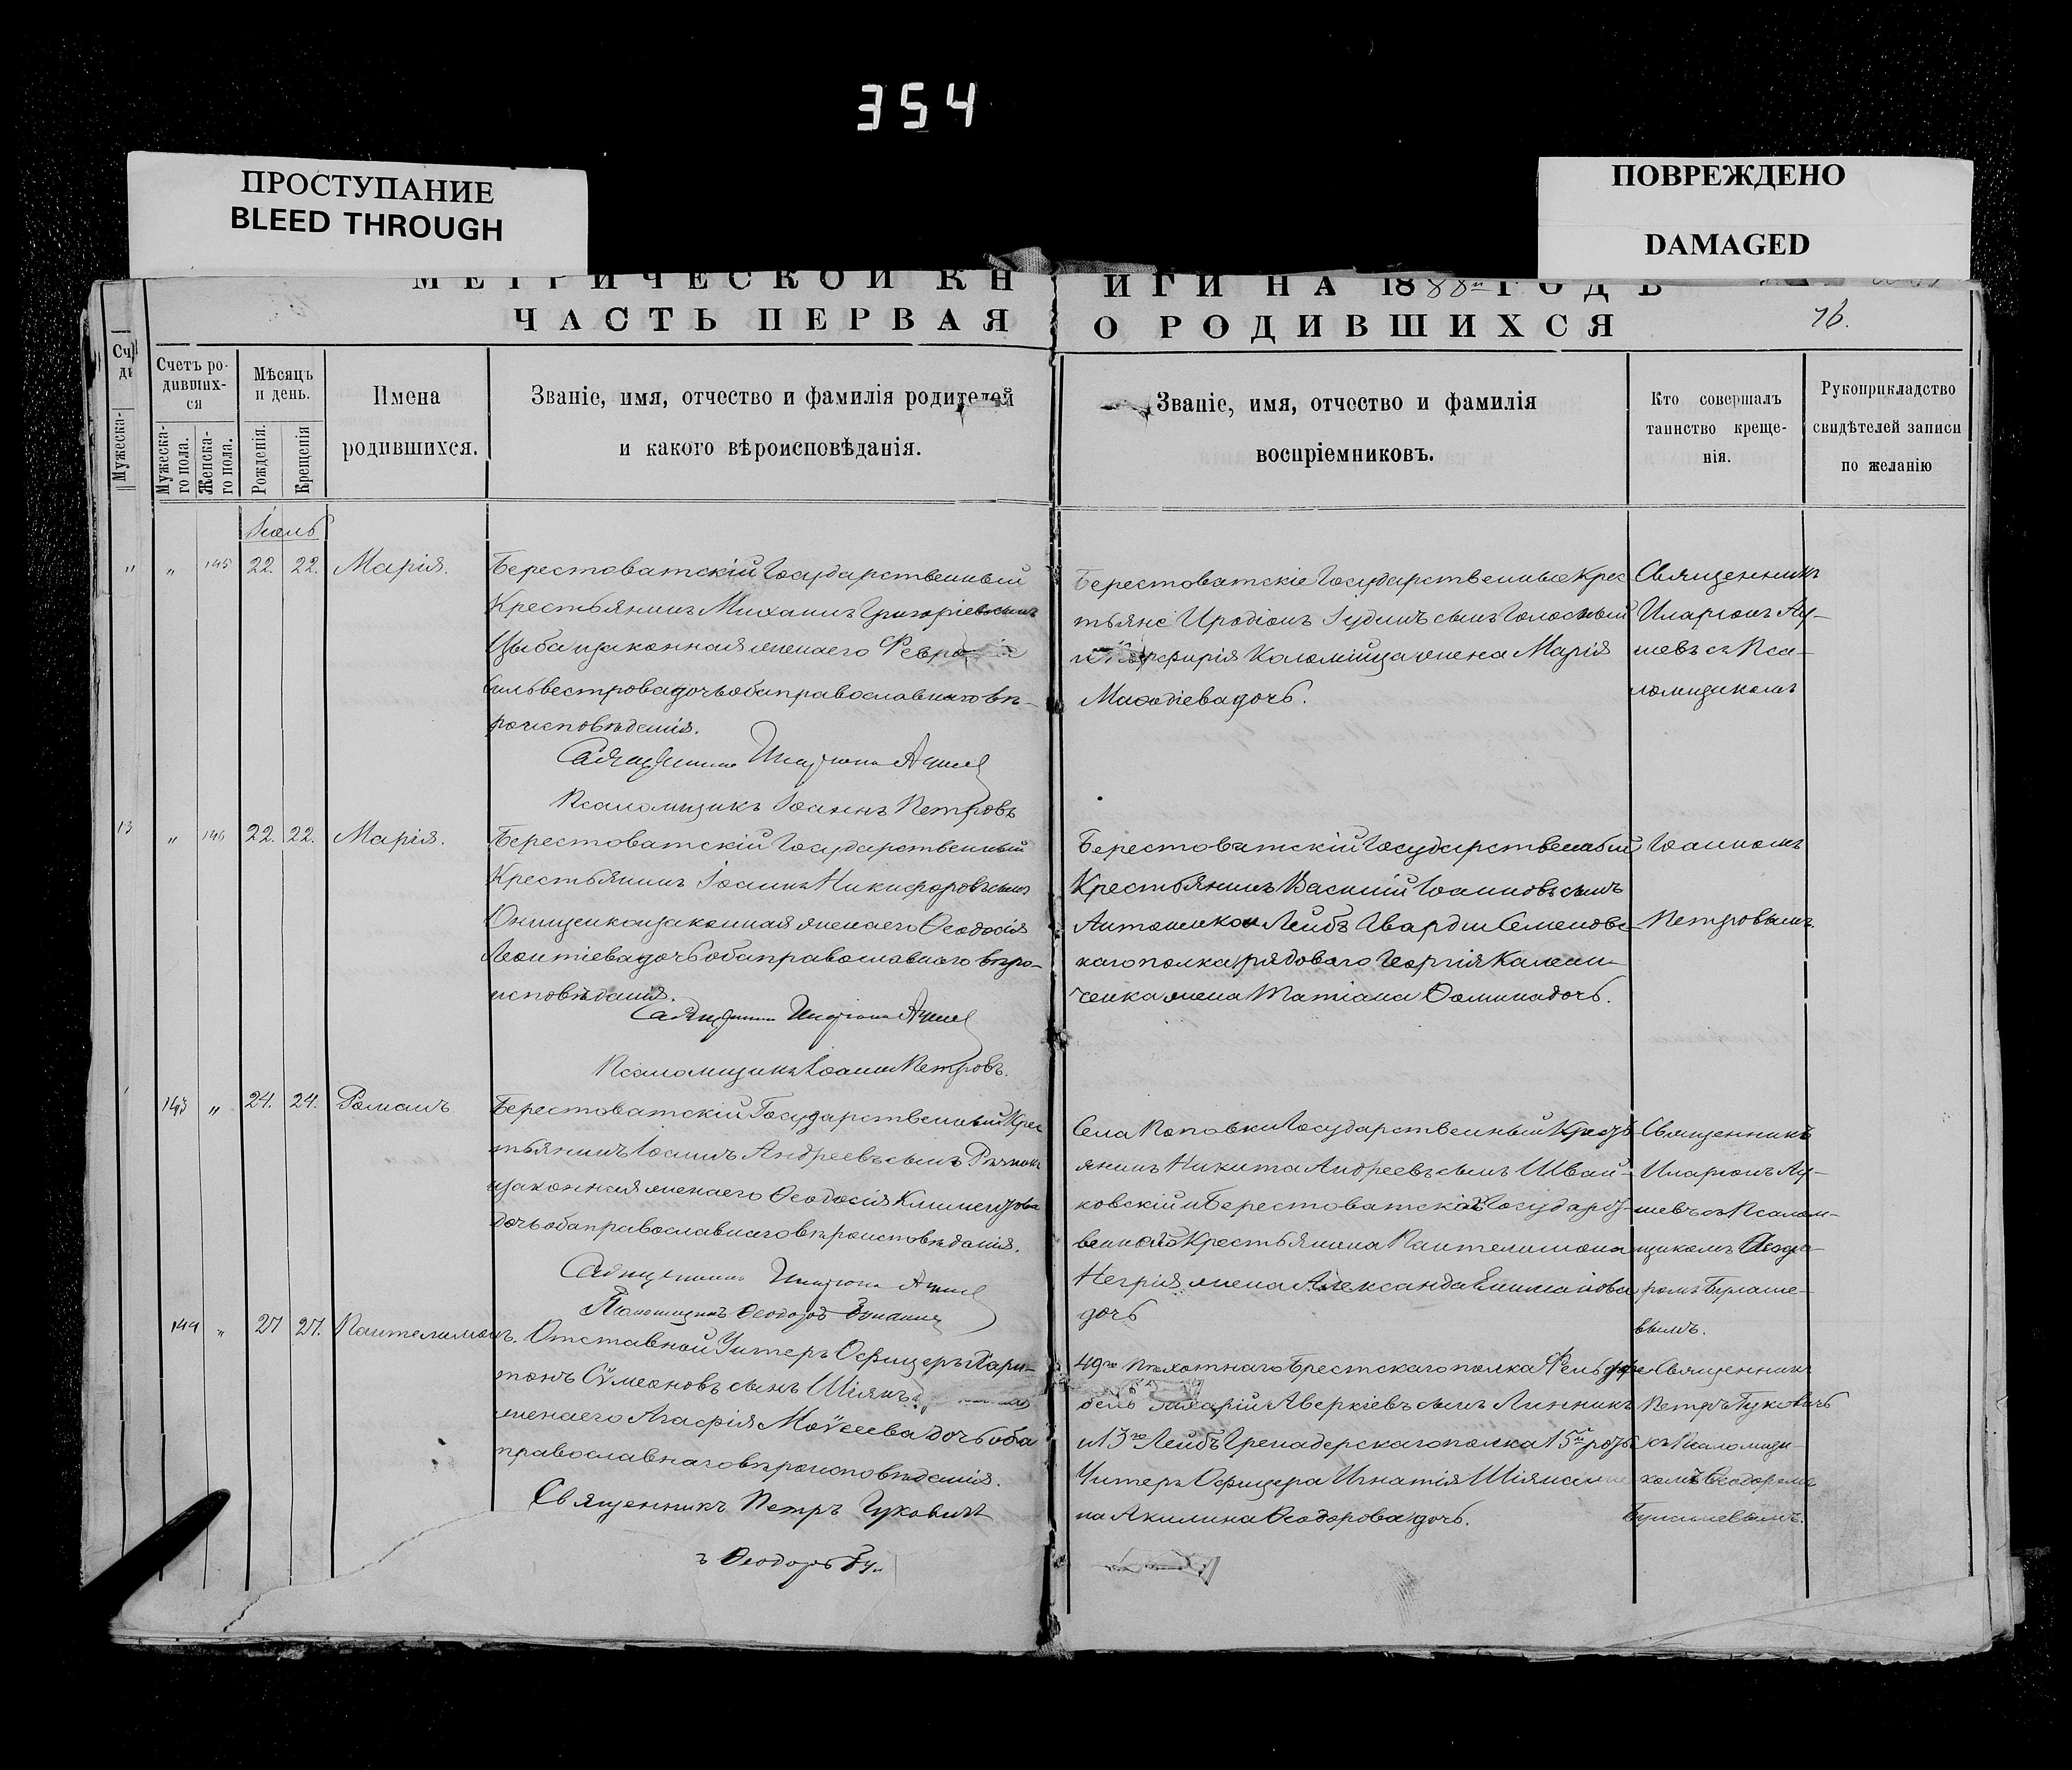 354
ПРОСТУПАНИЕ
BLEED THROUGH
ПОВРЕЖДЕНО
DAMAGED
МЕТРИЧЕСКОЙ КН
ИГИ НА 1888й ГОДЪ
ЧАСТЬ ПЕРВАЯ
О РОДИВШИХСЯ
76.
Счетъ ро-
дивших-
ся
Мужеска-
го пола.
Женска-
го пола.
Мѣсяцъ
и день.
Рожденія.
Крещенія
Имена
родившихся.
Званіе, имя, отчество и фамилія родителей
и какого вѣроисповѣданія.
Званіе, имя, отчество и фамилія
воспріемниковъ.
Кто совершалъ
таинство креще-
нія.
Рукоприкладство
свидѣтелей записи
по желанію
Мужеска-
Іюль
" 145 22. 22. Марія.
Берестоватскій Государственный
Крестьянинъ Михаилъ Григоріевъ сынъ
Цыба и законная жена его
Сильвестрова дочь оба православнаго вѣ-
роисповѣданія.
Священникъ Иларіонъ
Псаломщикъ Іоаннъ Петровъ
Берестоватскіе Государственные Крес
тьяне Иродіонъ Іудинъ сынъ Голосный
и Порфирія Коломійца жена Марія
Меѳодіева дочь.
Священникъ
Иларіонъ
шевъ съ Пса-
ломщикомъ
" 146 22. 22. Марія.
Берестоватскій Государственный
Крестьянинъ Іоаннъ Никифоровъ сынъ
Онищенко и законная жена его Ѳеодосія
Леонтіева дочь оба православнаго вѣро-
исповѣданія.
Священникъ Иларіонъ
Псаломщикъ Іоаннъ Петровъ.
Берестоватскій Государственный
Крестьянинъ Василій Іоанновъ сынъ
Антоненко и Лейбъ Гвардіи Семеновс-
каго полка рядоваго Георгія
ченка жена Татіана Ѳомина дочь.
Іоанномъ
Петровымъ.
" 24. 24. Романъ
Берестоватскій Государственный Крес
тьянинъ Іоаннъ Андреевъ сынъ
и законная жена его Ѳеодосія Климентова
дочь оба православнаго вѣроисповѣданія.
Священникъ Иларіонъ
Псаломщикъ Ѳеодоръ
Села Поповки Государственный Кресть
янинъ Никита Андреевъ сынъ Швай-
ковскій и Берестоватскаго Государст-
веннаго Крестьянина Пантелимона
Негрія жена Александра
дочь
Священникъ
Иларіонъ
шевъ съ Псалом-
щикомъ Ѳеодо-
ромъ
вымъ.
149 " 27 27. Пантелимонъ.
Отставной Унтеръ Офицеръ Хари-
тонъ Сѵмеоновъ сынъ
жена его Агафія Моѵсеева дочь оба
православнаго вѣроисповѣданія.
Священникъ Петръ Гуковичъ
ъ Ѳеодоръ Бу
49го Пѣхотнаго Брестскаго полка Фельдфе-
бель Аверкіевъ сынъ Линникъ
и 13го Лейбъ Гренадерскаго полка 15й роты
Унтеръ Офицера Игнатія
на Акилина Ѳеодорова дочь.
Священникъ
Петръ Гуковичъ
съ Псаломщи-
комъ Ѳеодоромъ